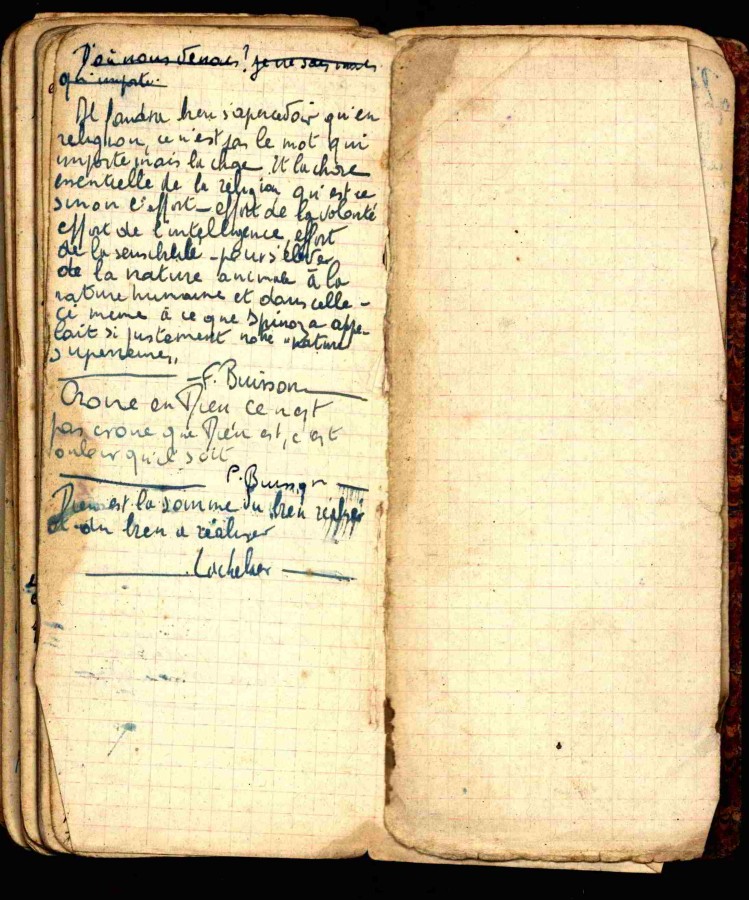 D'où nous venons? je ne sais mais
qu'importe
Il faudra bien s'apercevoir qu'en
religion, ce n'est pas le mot qui
importe mais la chose. Et la chose
essentielle de la religion qu'est ce
sinon l'effort – effort de la volonté
effort de l'intelligence, effort
de la sensibilité – pour s'élever
de la nature animale à la
nature humaine et dans celle-
ci même à ce que Spinoza appe-
lait si justement notre "nature
supérieure".
F. Buisson
Croire en Dieu ce n'est
pas croire que Dieu est, c'est
vouloir qu'il soit
Buisson
Dieu est la somme du bien réalisé
et du bien à réaliser
Lachelier